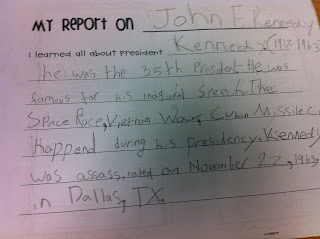 MY REPORT ON John F Kennedy
I learned all about President Kennedy.(1917-1963)
he was the 35th President. He was
famous for his inagural Speech. The
Space Race, Vietnam War, Cuban Missile
Happend during his presidency. Kennedy
was assassinated on November 22, 1963,
in Dallas, TX.